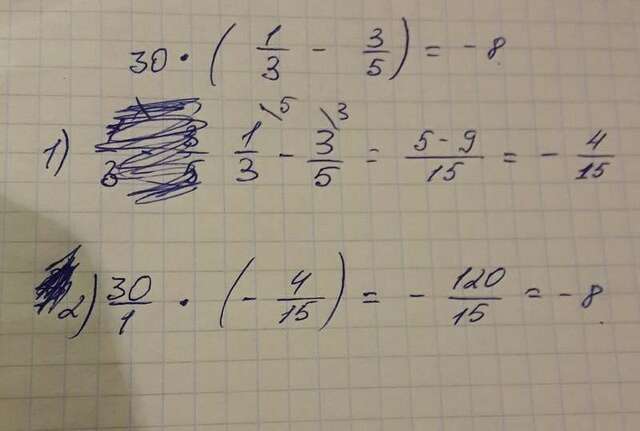 30 · ( 1/3 - 3/5 ) = - 8
1) 1/3 \5 - 3/5 \3 = 5-9/15 = - 4/15
2) 30/1 · ( - 4/15 ) = - 120/15 = - 8